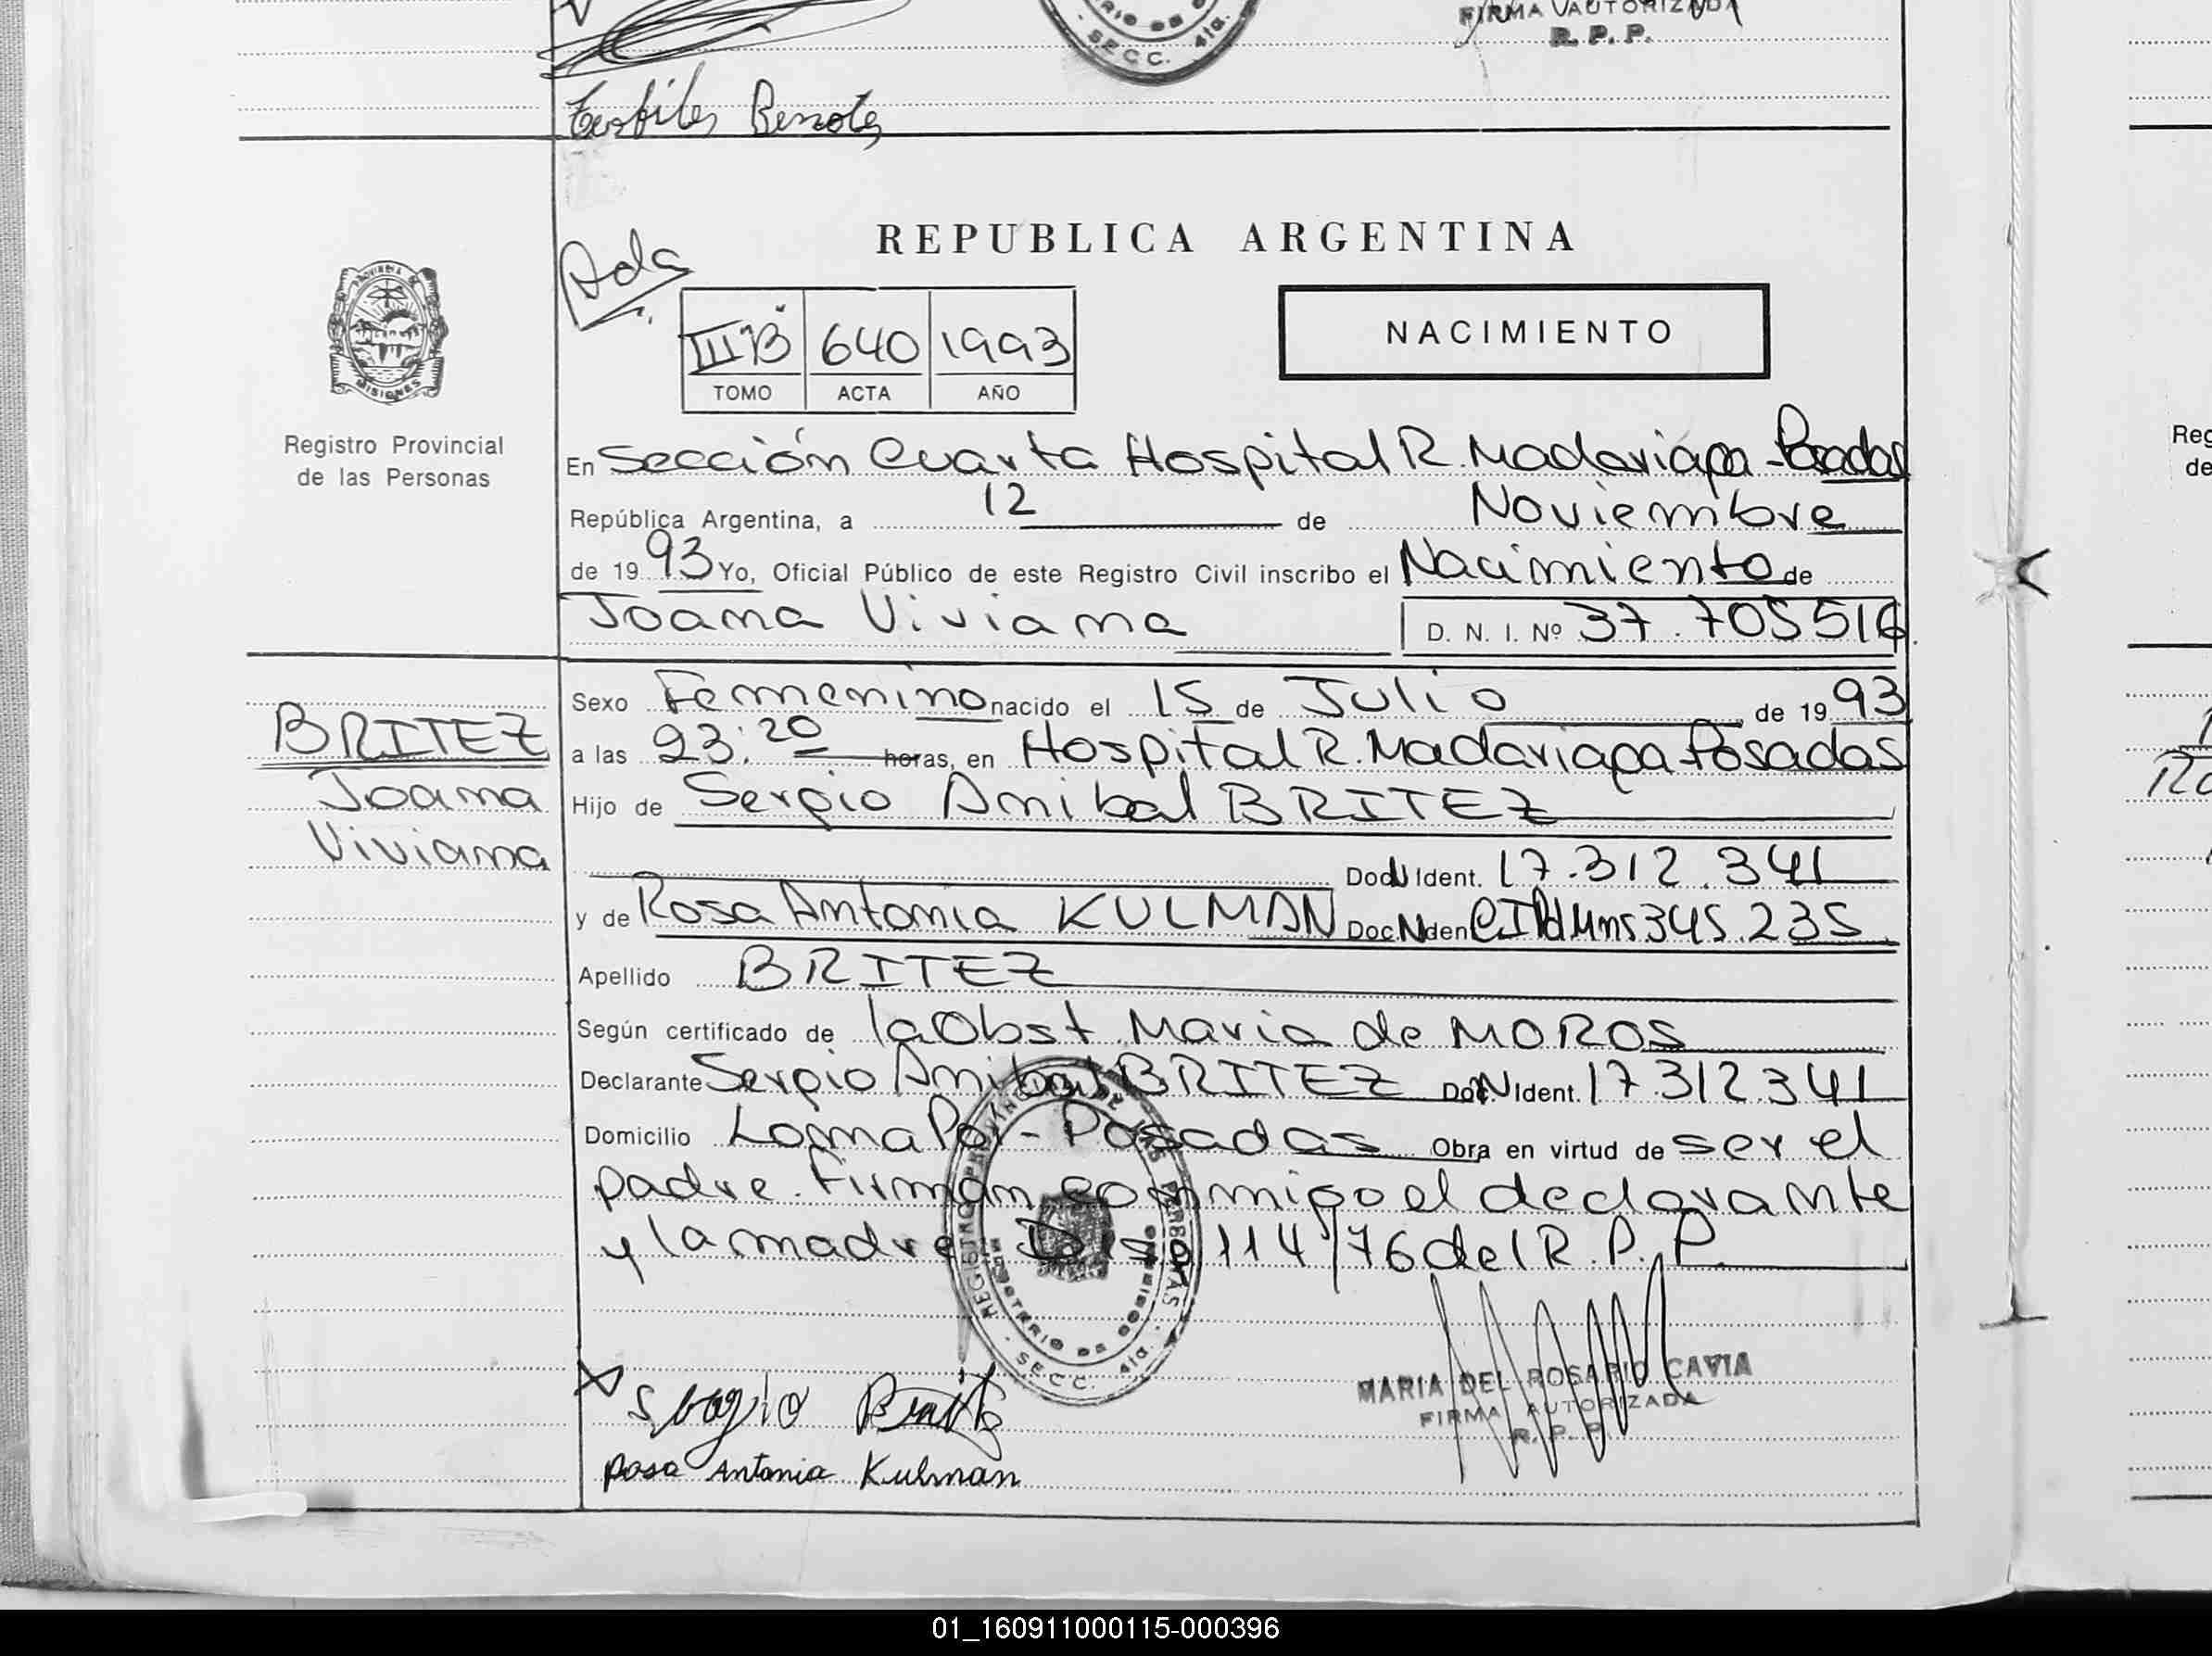 FIRMA AUTORIZADA
R. P. P.
SECC. 4ta.
REPUBLICA ARGENTINA
Ada
III B 640 1993
TOMO ACTA AÑO
NACIMIENTO
PROVINCIA DE
MISIONES
Registro Provincial
de las Personas
En Sección Cuarta Hospital R. Madariaga - Posadas
República Argentina, a 12 de Noviembre
de 19 93 Yo, Oficial Público de este Registro Civil inscribo el Nacimiento de
Joana Viviana D. N. I. Nº 37.705516
BRITEZ
Joana
Viviana
Sexo Femenino nacido el 15 de Julio de 19 93
a las 23:20 horas, en Hospital R. Madariaga Posadas
Hijo de Sergio Anibal BRITEZ
Doc N Ident. 17.312.341
y de Rosa Antonia KULMAN Doc N Iden C.I Pd Mns 345.235
Apellido BRITEZ
Según certificado de la Obst. Maria de MOROS
Declarante Sergio Anibal BRITEZ Doc N Ident. 17312341
Domicilio Loma Poi - Posadas Obra en virtud de ser el
padre. Firman conmigo el declarante
y la madre Disp 114/76 del R. P. P.
REGISTRO PROVINCIAL DE LAS PERSONAS
MINISTERIO DE GOBIERNO
SECC. 4ta.
MARIA DEL ROSARIO CAVIA
FIRMA AUTORIZADA
R. P. P.
Rosa Antonia Kulman
01_160911000115-000396